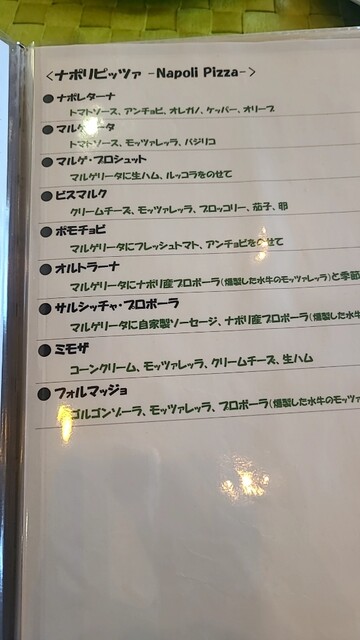 ＜ナポリピッツァ -Napoli Pizza-＞
●ナポレターナ
トマトソース、アンチョビ、オレガノ、ケッパー、オリーブ
●マルゲリータ
トマトソース、モッツァレッラ、バジリコ
●マルゲ・プロシュット
マルゲリータに生ハム、ルッコラをのせて
●ビスマルク
クリームチーズ、モッツァレッラ、ブロッコリー、茄子、卵
●ポモチョビ
マルゲリータにフレッシュトマト、アンチョビをのせて
●オルトラーナ
マルゲリータにナポリ産プロボーラ(燻製した水牛のモッツァレッラ)と季節
●サルシッチャ・プロボーラ
マルゲリータに自家製ソーセージ、ナポリ産プロボーラ(燻製した水牛
●ミモザ
コーンクリーム、モッツァレッラ、クリームチーズ、生ハム
●フォルマッジョ
ゴルゴンゾーラ、モッツァレッラ、プロボーラ(燻製した水牛のモッツァ